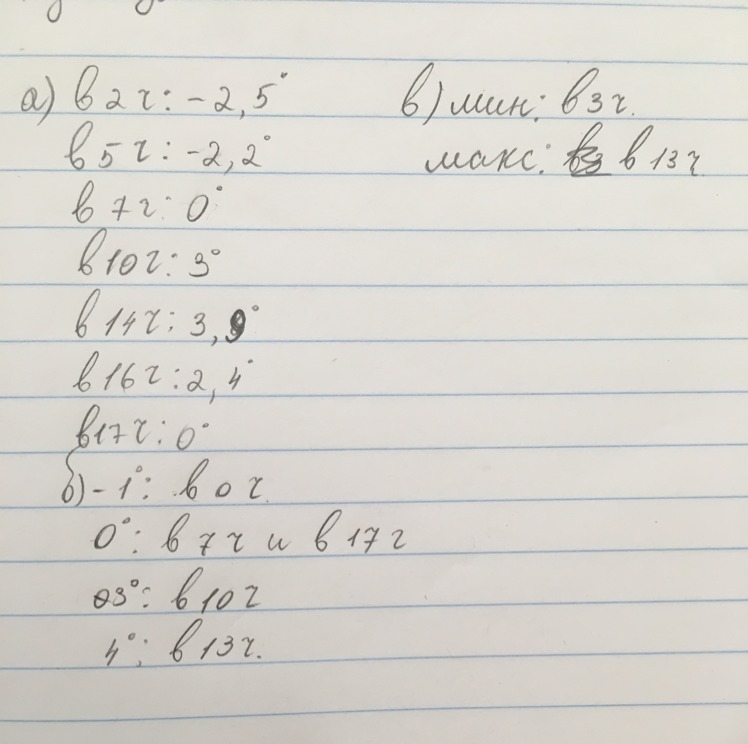 а) в 2 ч: -2,5°
в 5 ч: -2,2°
в 7 ч: 0°
в 10 ч: 3°
в 14 ч: 3,9°
в 16 ч: 2,4°
в 17 ч: 0°
б) -1°: в 0 ч.
0°: в 7 ч и в 17 ч
3°: в 10 ч
4°: в 13 ч.
в) мин: в 3 ч.
макс: в 13 ч